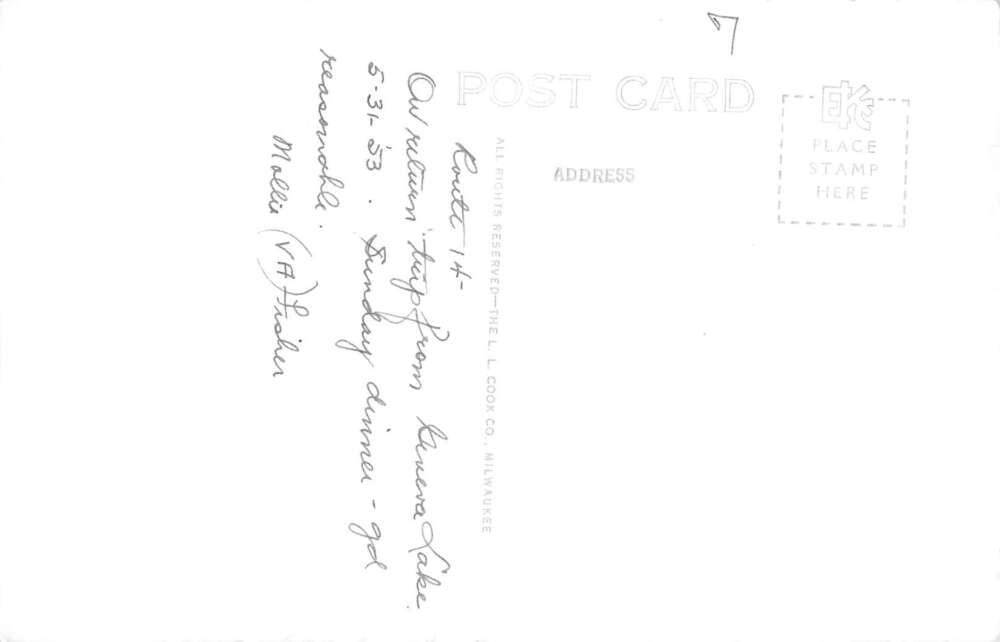 POST CARD
EKC
PLACE
STAMP
HERE
ADDRESS
ALL RIGHTS RESERVED—THE L. L. COOK CO., MILWAUKEE
Route 14-
On return trip from Geneva Lake.
5-31-53. Sunday dinner - gd
reasonable.
Mollie (VA) Fisher